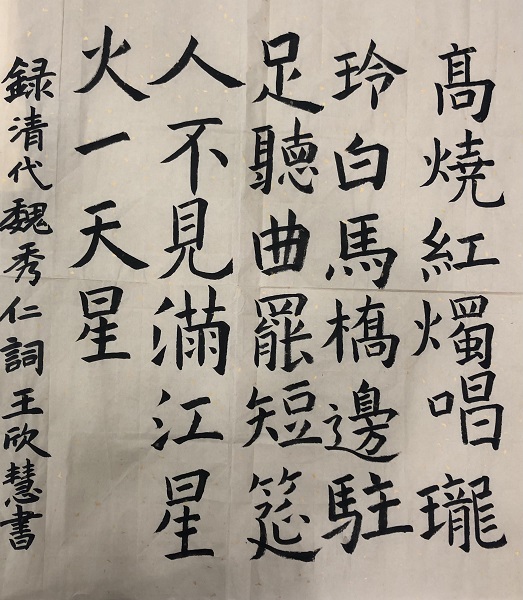 髙燒紅燭唱瓏
玲白馬橋邊駐
足聽曲罷短筵
人不見滿江星
火一天星
録清代魏秀仁詞王欣慧書